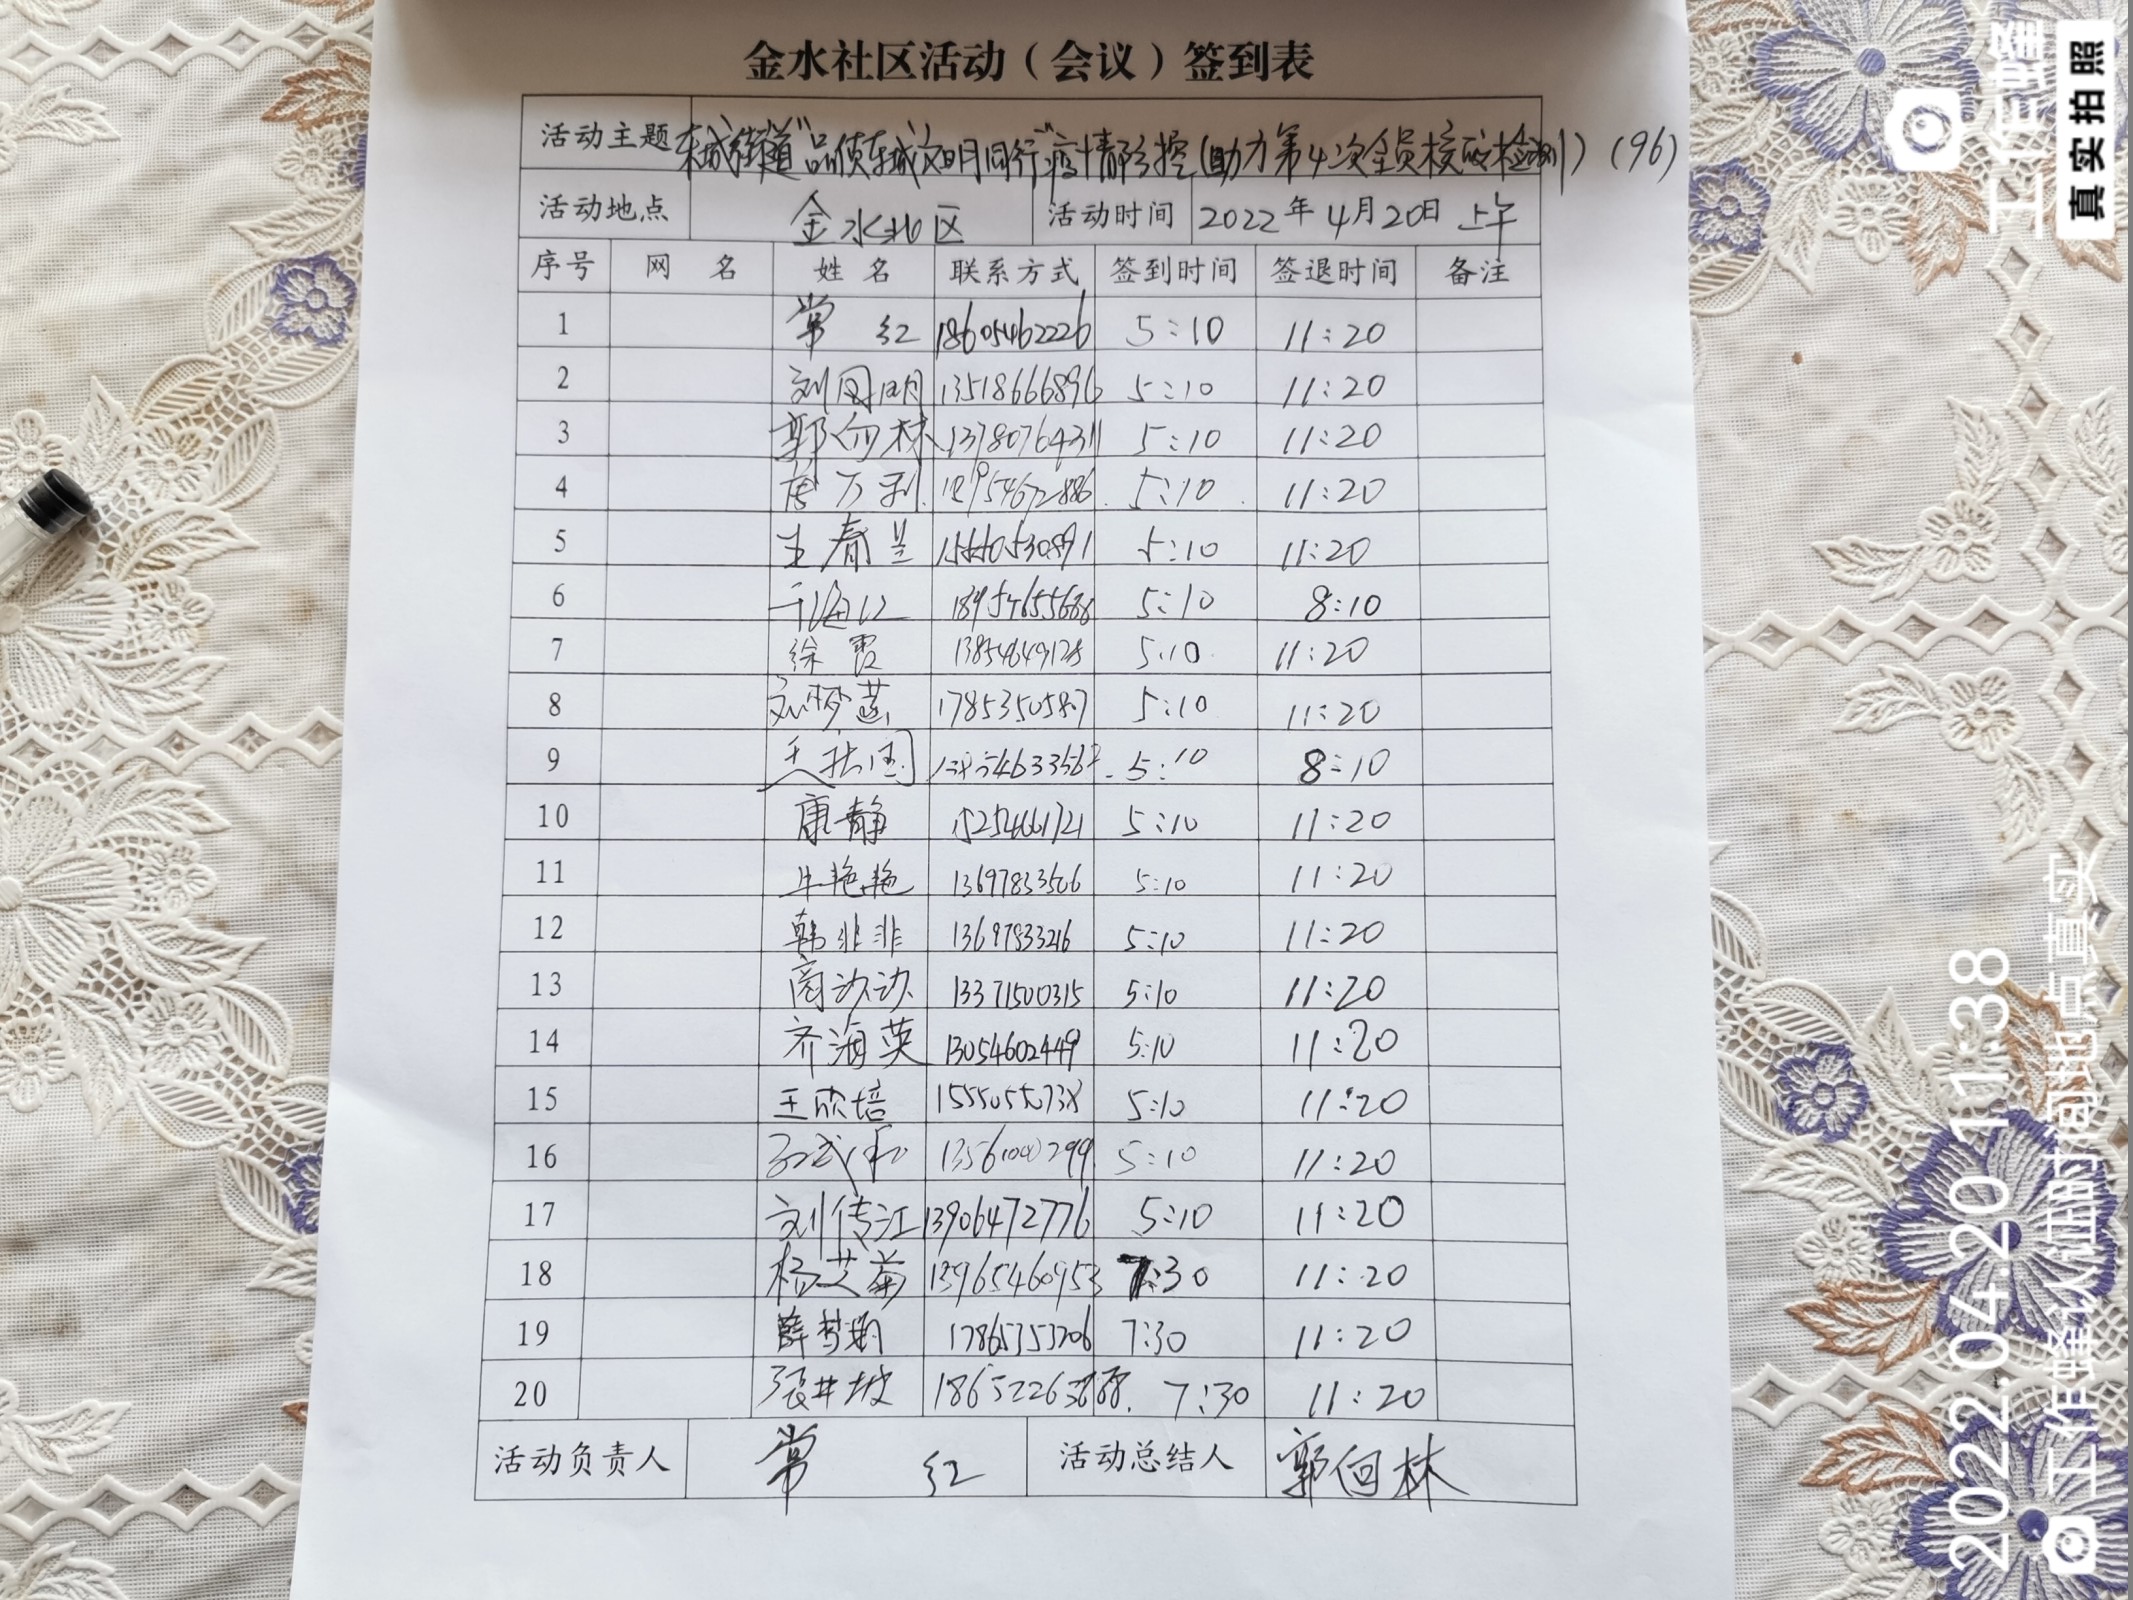 金水社区活动（会议）签到表
活动主题 东城街道"品质东城文明同行"疫情防控（助力第4次全员核酸检测）（96）
活动地点 金水北区 活动时间 2022年4月20日 上午
序号 网名 姓名 联系方式 签到时间 签退时间 备注
1 常红 18605462226 5:10 11:20
2 刘国明 13518666896 5:10 11:20
3 郭向林 13780764311 5:10 11:20
4 万利 18954672886 5:10 11:20
5 王春兰 5:10 11:20
6 18954655688 5:10 8:10
7 徐霞 13854649128 5:10 11:20
8 刘梦莲 17853505897 5:10 11:20
9 5:10 8:10
10 康静 15254661721 5:10 11:20
11 牛艳艳 13697833506 5:10 11:20
12 韩非非 13697833216 5:10 11:20
13 13371500315 5:10 11:20
14 齐海英 13054602449 5:10 11:20
15 王欣培 15550550738 5:10 11:20
16 5:10 11:20
17 刘传江 13906472776 5:10 11:20
18 杨芝菊 13965460953 7:30 11:20
19 薛梦娟 17865353206 7:30 11:20
20 张井坡 7:30 11:20
活动负责人 常红 活动总结人 郭向林
工作蜂
真实拍照
2022.04.20 11:38
工作蜂认证时间地点真实